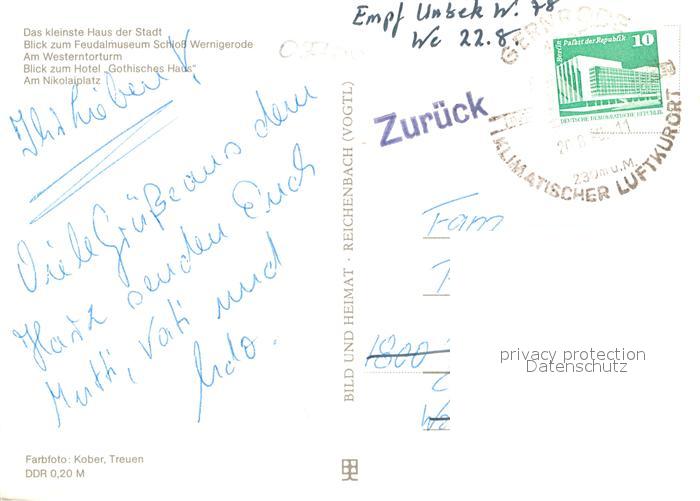 Das kleinste Haus der Stadt
Blick zum Feudalmuseum Schloß Wernigerode
Am Westerntorturm
Blick zum Hotel „Gothisches Haus"
Am Nikolaiplatz
Ihr Lieben!
Viele Grüße aus dem
Harz senden Euch
Mutti, Vati und
Udo.
Farbfoto: Kober, Treuen
DDR 0,20 M
BILD UND HEIMAT · REICHENBACH (VOGTL)
Empf Unbek W. 78
We 22.8.
Zurück
GERNRODE
KLIMATISCHER LUFTKURORT
230m ü.M.
Berlin Palast der Republik 10
DEUTSCHE DEMOKRATISCHE REPUBLIK
Fam
1800
privacy protection
Datenschutz